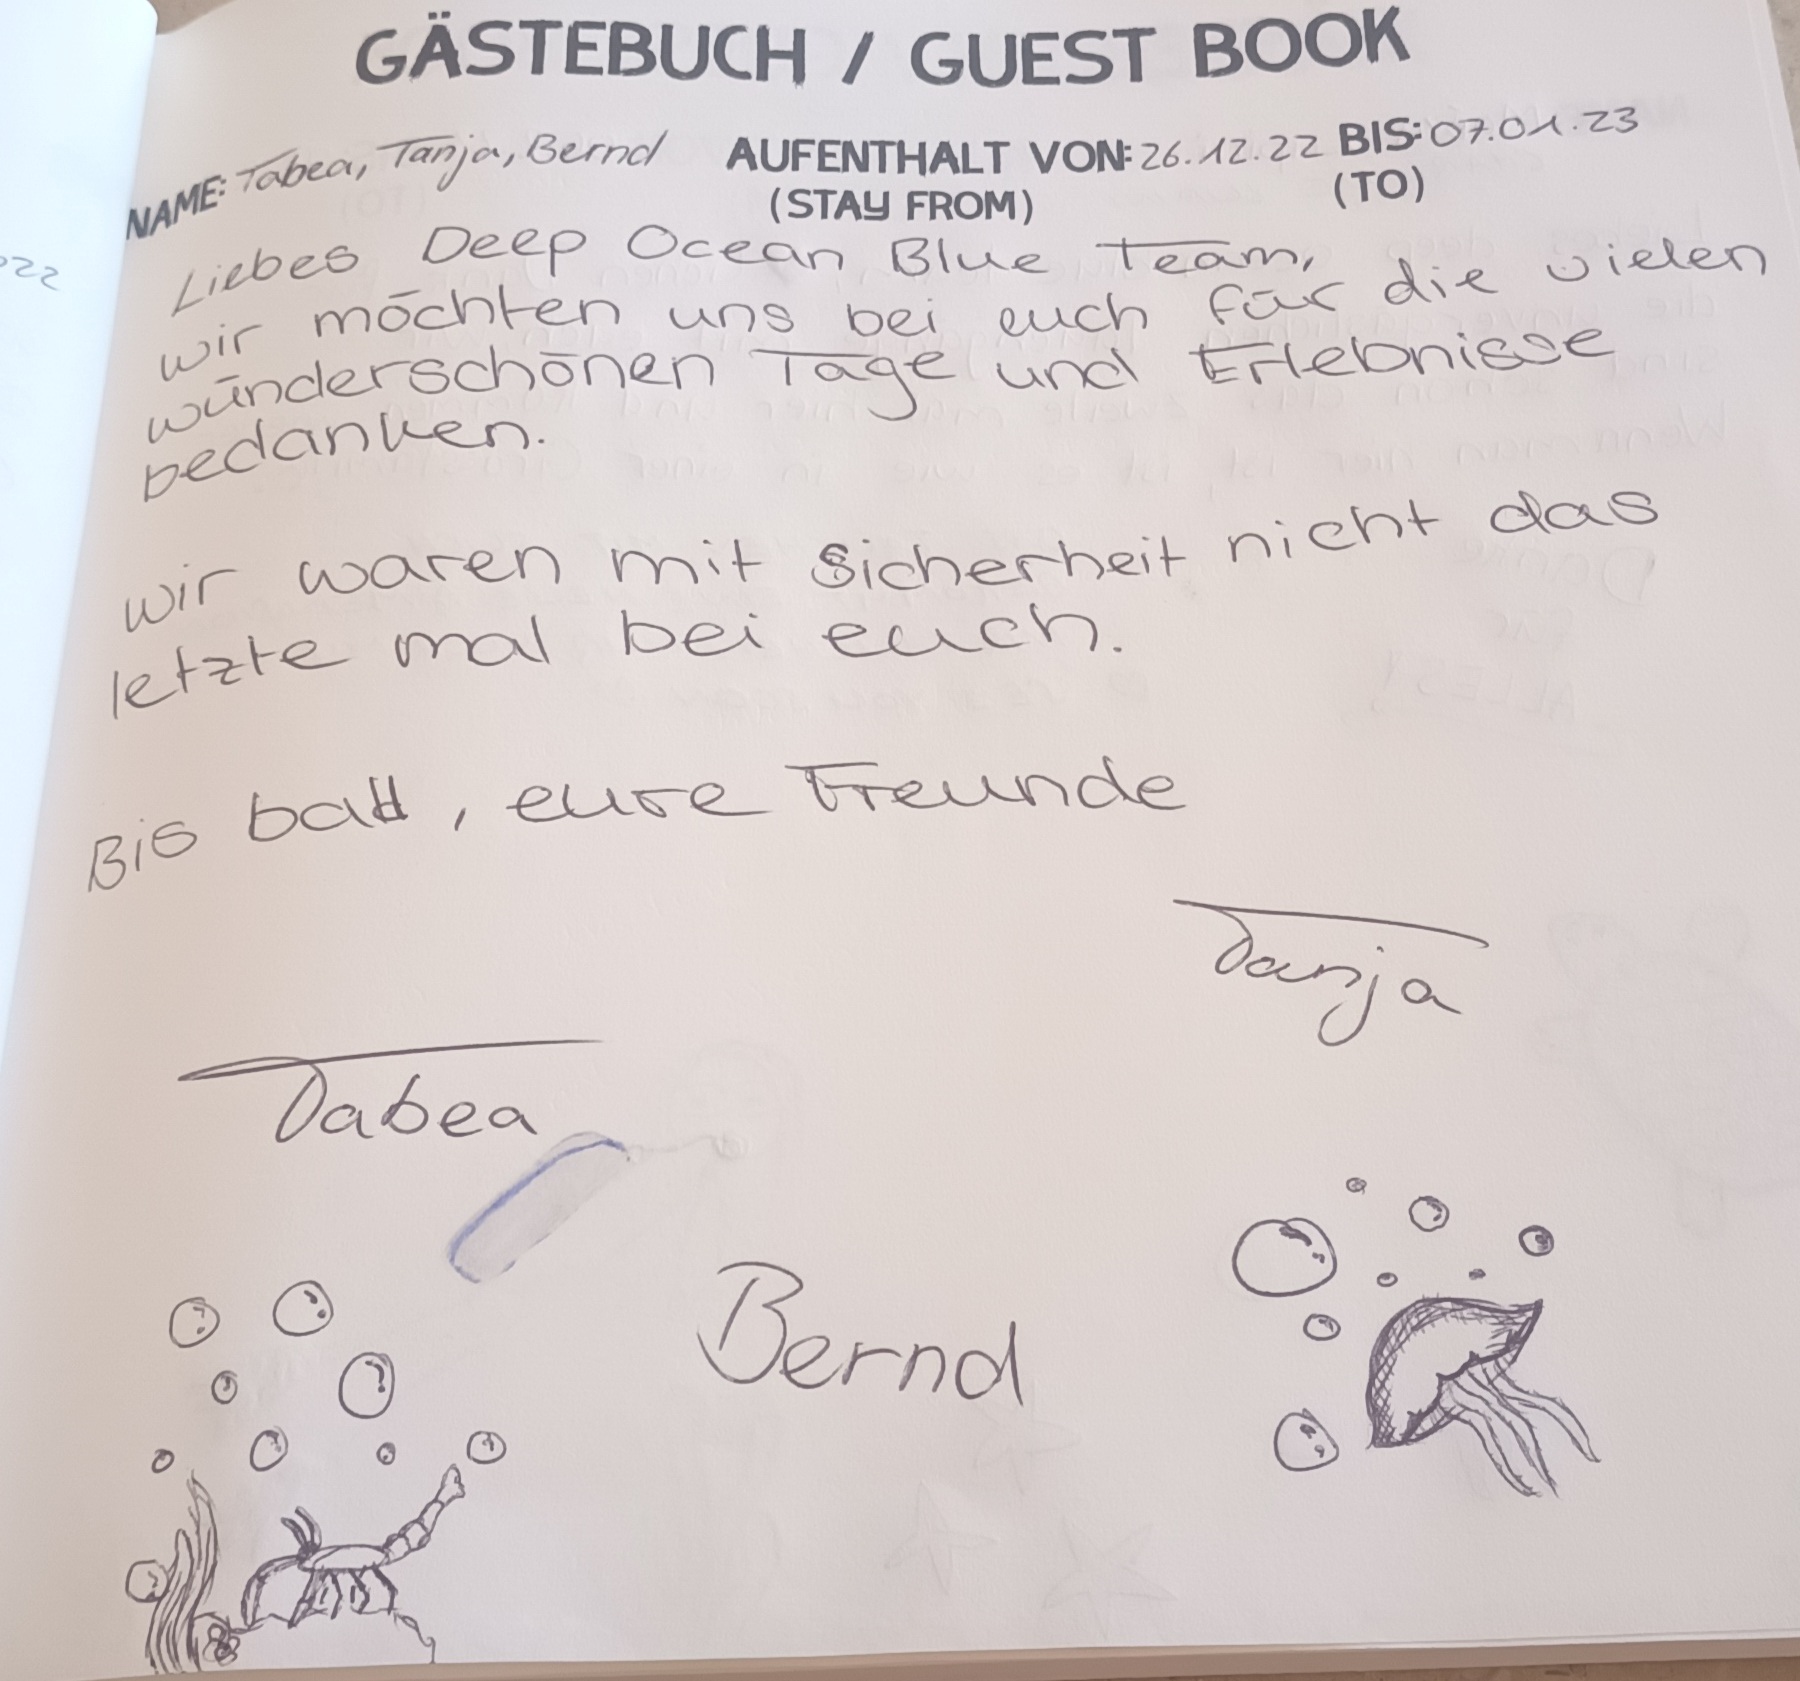 GÄSTEBUCH / GUEST BOOK
NAME: Tabea, Tanja, Bernd AUFENTHALT VON: 26.12.22 BIS: 07.01.23
(STAY FROM) (TO)
22
Liebes Deep Ocean Blue Team,
wir möchten uns bei euch für die vielen
wünderschönen Tage und Erlebnisse
bedanken.
wir waren mit Sicherheit nicht das
letzte mal bei euch.
Bis bald, eure Freunde
Tanja
Tabea
Bernd